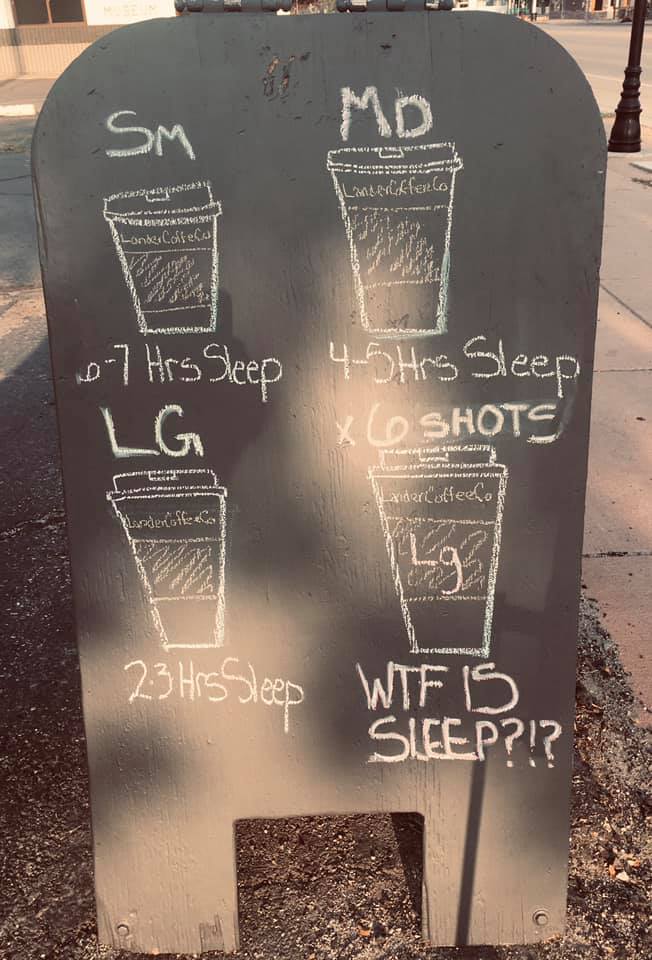 MUSEUM
SM
LanderCoffeeCo
6-7 Hrs Sleep
MD
LanderCoffeeCo
4-5 Hrs Sleep
LG
LanderCoffeeCo
2-3 Hrs Sleep
x 6 SHOTS
LanderCoffeeCo
Lg
WTF IS
SLEEP?!?